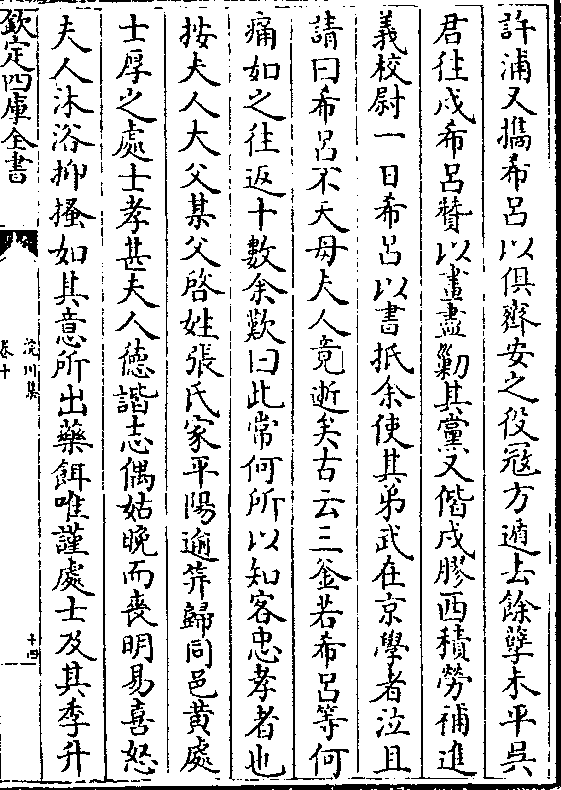 許浦又攜希呂以俱齊安之役冦方遁去餘孽未平吳
君往戍希呂贊以畫盡勦其黨又偕戍膠西積勞補進
義校尉一日希呂以書抵余使其弟武在京學者泣且
請曰希呂不天母夫人竟逝矣古云三釡若希呂等何
痛如之往返十數余歎曰此常何所以知客忠孝者也
按夫人大父某父啓姓張氏家平陽逾笄歸同邑黄處
士厚之處士孝甚夫人徳諧志偶姑晩而喪明易喜怒
夫人沐浴抑搔如其意所出藥餌唯謹處士及其季升
欽定四庫全書
浣川集
卷十
十四